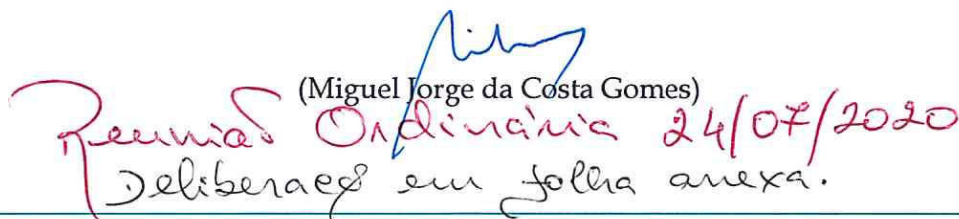 (Miguel Jorge da Costa Gomes)
Reunião Ordinária 24/07/2020
Deliberação em folha anexa.